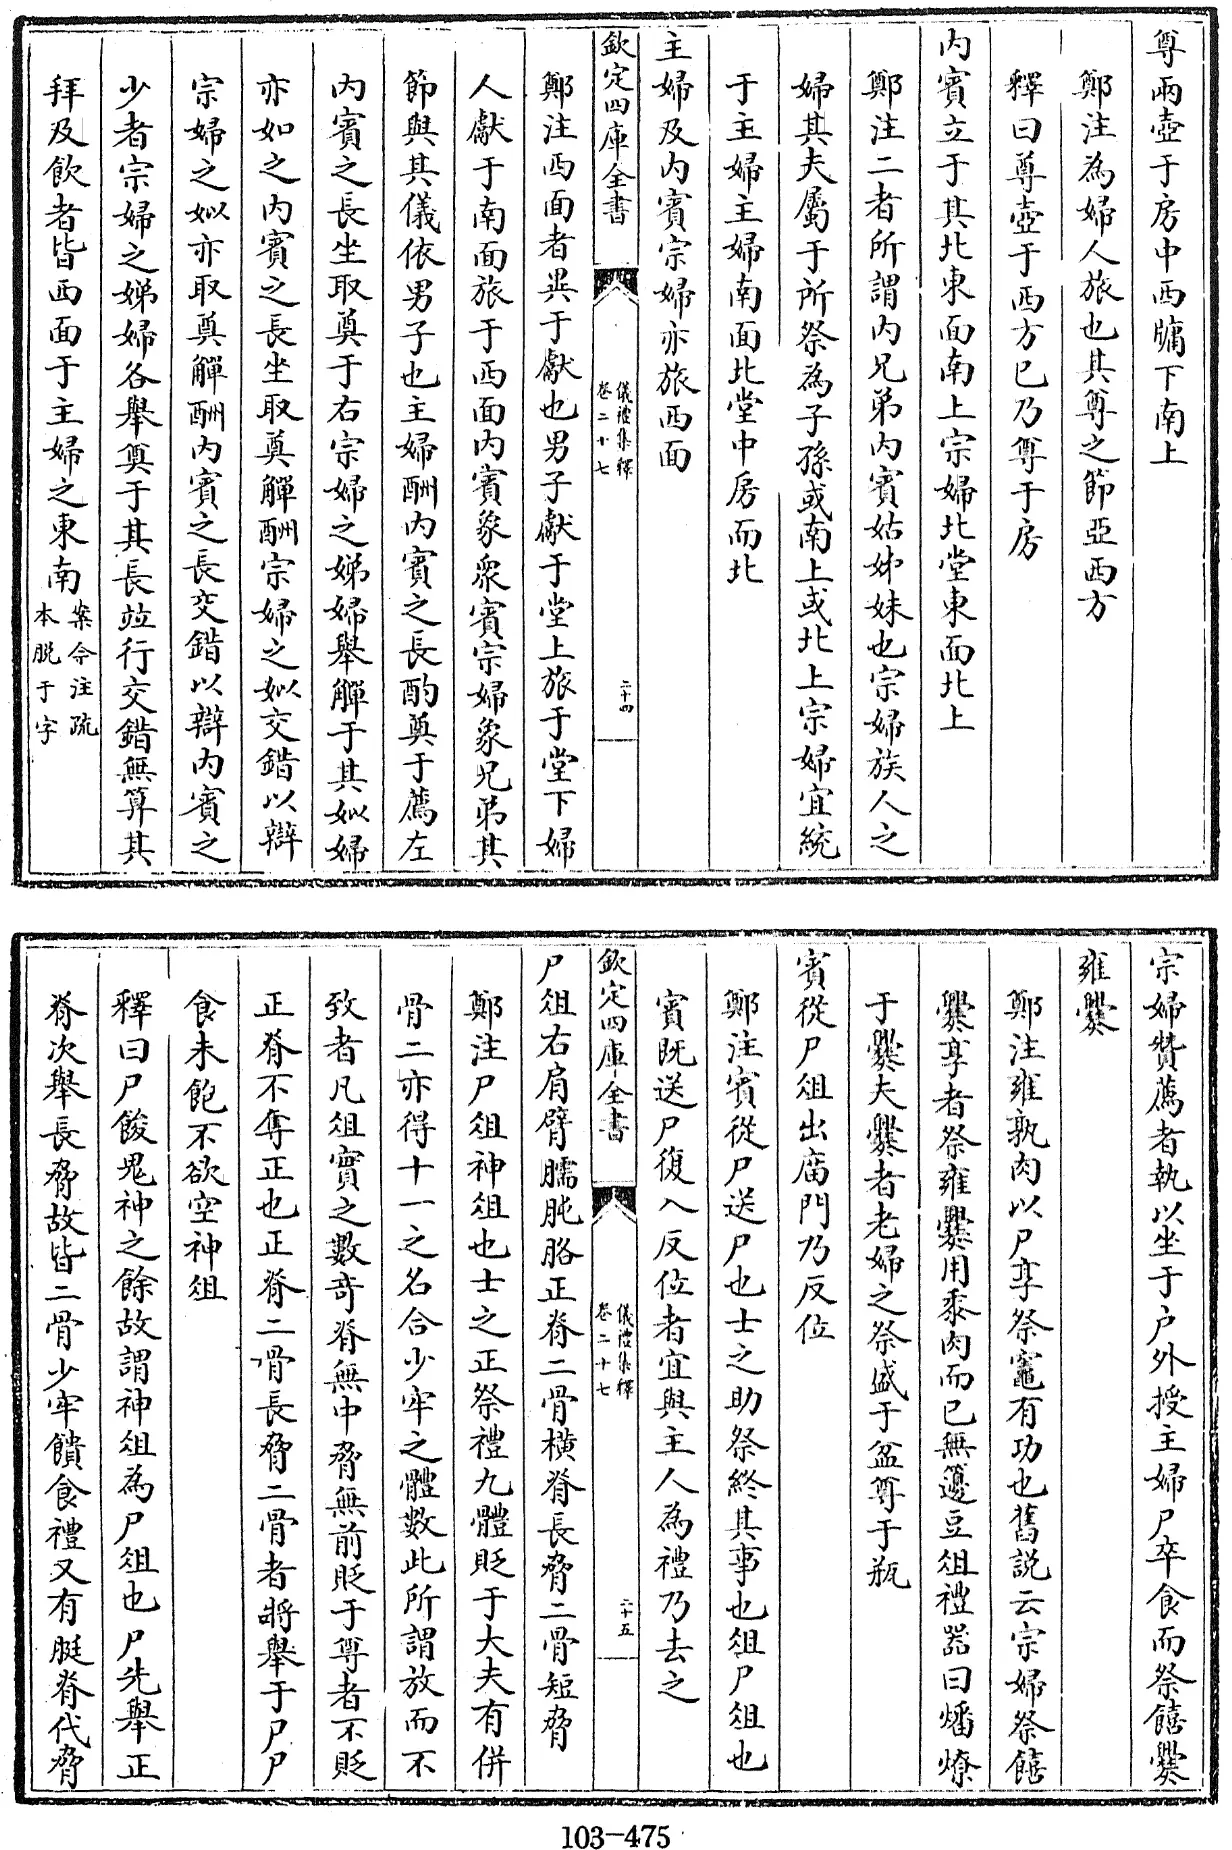 尊兩壺于房中西牖下南上
鄭注為婦人旅也其尊之節亞西方
釋曰尊壺于西方已乃尊于房
内賓立于其北東面南上宗婦北堂東面北上
鄭注二者所謂内兄弟内賓姑姊妹也宗婦族人之
婦其夫屬于所祭為子孫或南上或北上宗婦宜統
于主婦主婦南面北堂中房而北
主婦及内賓宗婦亦旅西面
欽定四庫全書
儀禮集釋
卷二十七
二十四
鄭注西面者異于獻也男子獻于堂上旅于堂下婦
人獻于南面旅于西面内賓象衆賓宗婦象兄弟其
節與其儀依男子也主婦酬内賓之長酌奠于薦左
内賓之長坐取奠于右宗婦之娣婦舉觶于其姒婦
亦如之内賓之長坐取奠觶酬宗婦之姒交錯以辯
宗婦之姒亦取奠觶酬内賓之長交錯以辯内賓之
少者宗婦之娣婦各舉奠于其長竝行交錯無算其
拜及飲者皆西面于主婦之東南
案今注疏
本脱于字
宗婦贊薦者執以坐于户外授主婦尸卒食而祭饎爨
雍爨
鄭注雍孰肉以尸享祭竈有功也舊説云宗婦祭饎
爨享者祭雍爨用黍肉而已無籩豆俎禮器曰燔燎
于爨夫爨者老婦之祭盛于盆尊于瓶
賓從尸俎出廟門乃反位
鄭注賓從尸送尸也士之助祭終其事也俎尸俎也
賓既送尸復入反位者宜與主人為禮乃去之
欽定四庫全書
儀禮集釋
卷二十七
二十五
尸俎右肩臂臑肫胳正脊二骨横脊長脅二骨短脅
鄭注尸俎神俎也士之正祭禮九體貶于大夫有併
骨二亦得十一之名合少牢之體數此所謂放而不
致者凡俎實之數奇脊無中脅無前貶于尊者不貶
正脊不奪正也正脊二骨長脅二骨者將舉于尸尸
食未飽不欲空神俎
釋曰尸餕鬼神之餘故謂神俎為尸俎也尸先舉正
脊次舉長脅故皆二骨少牢饋食禮又有脡脊代脅
103-475